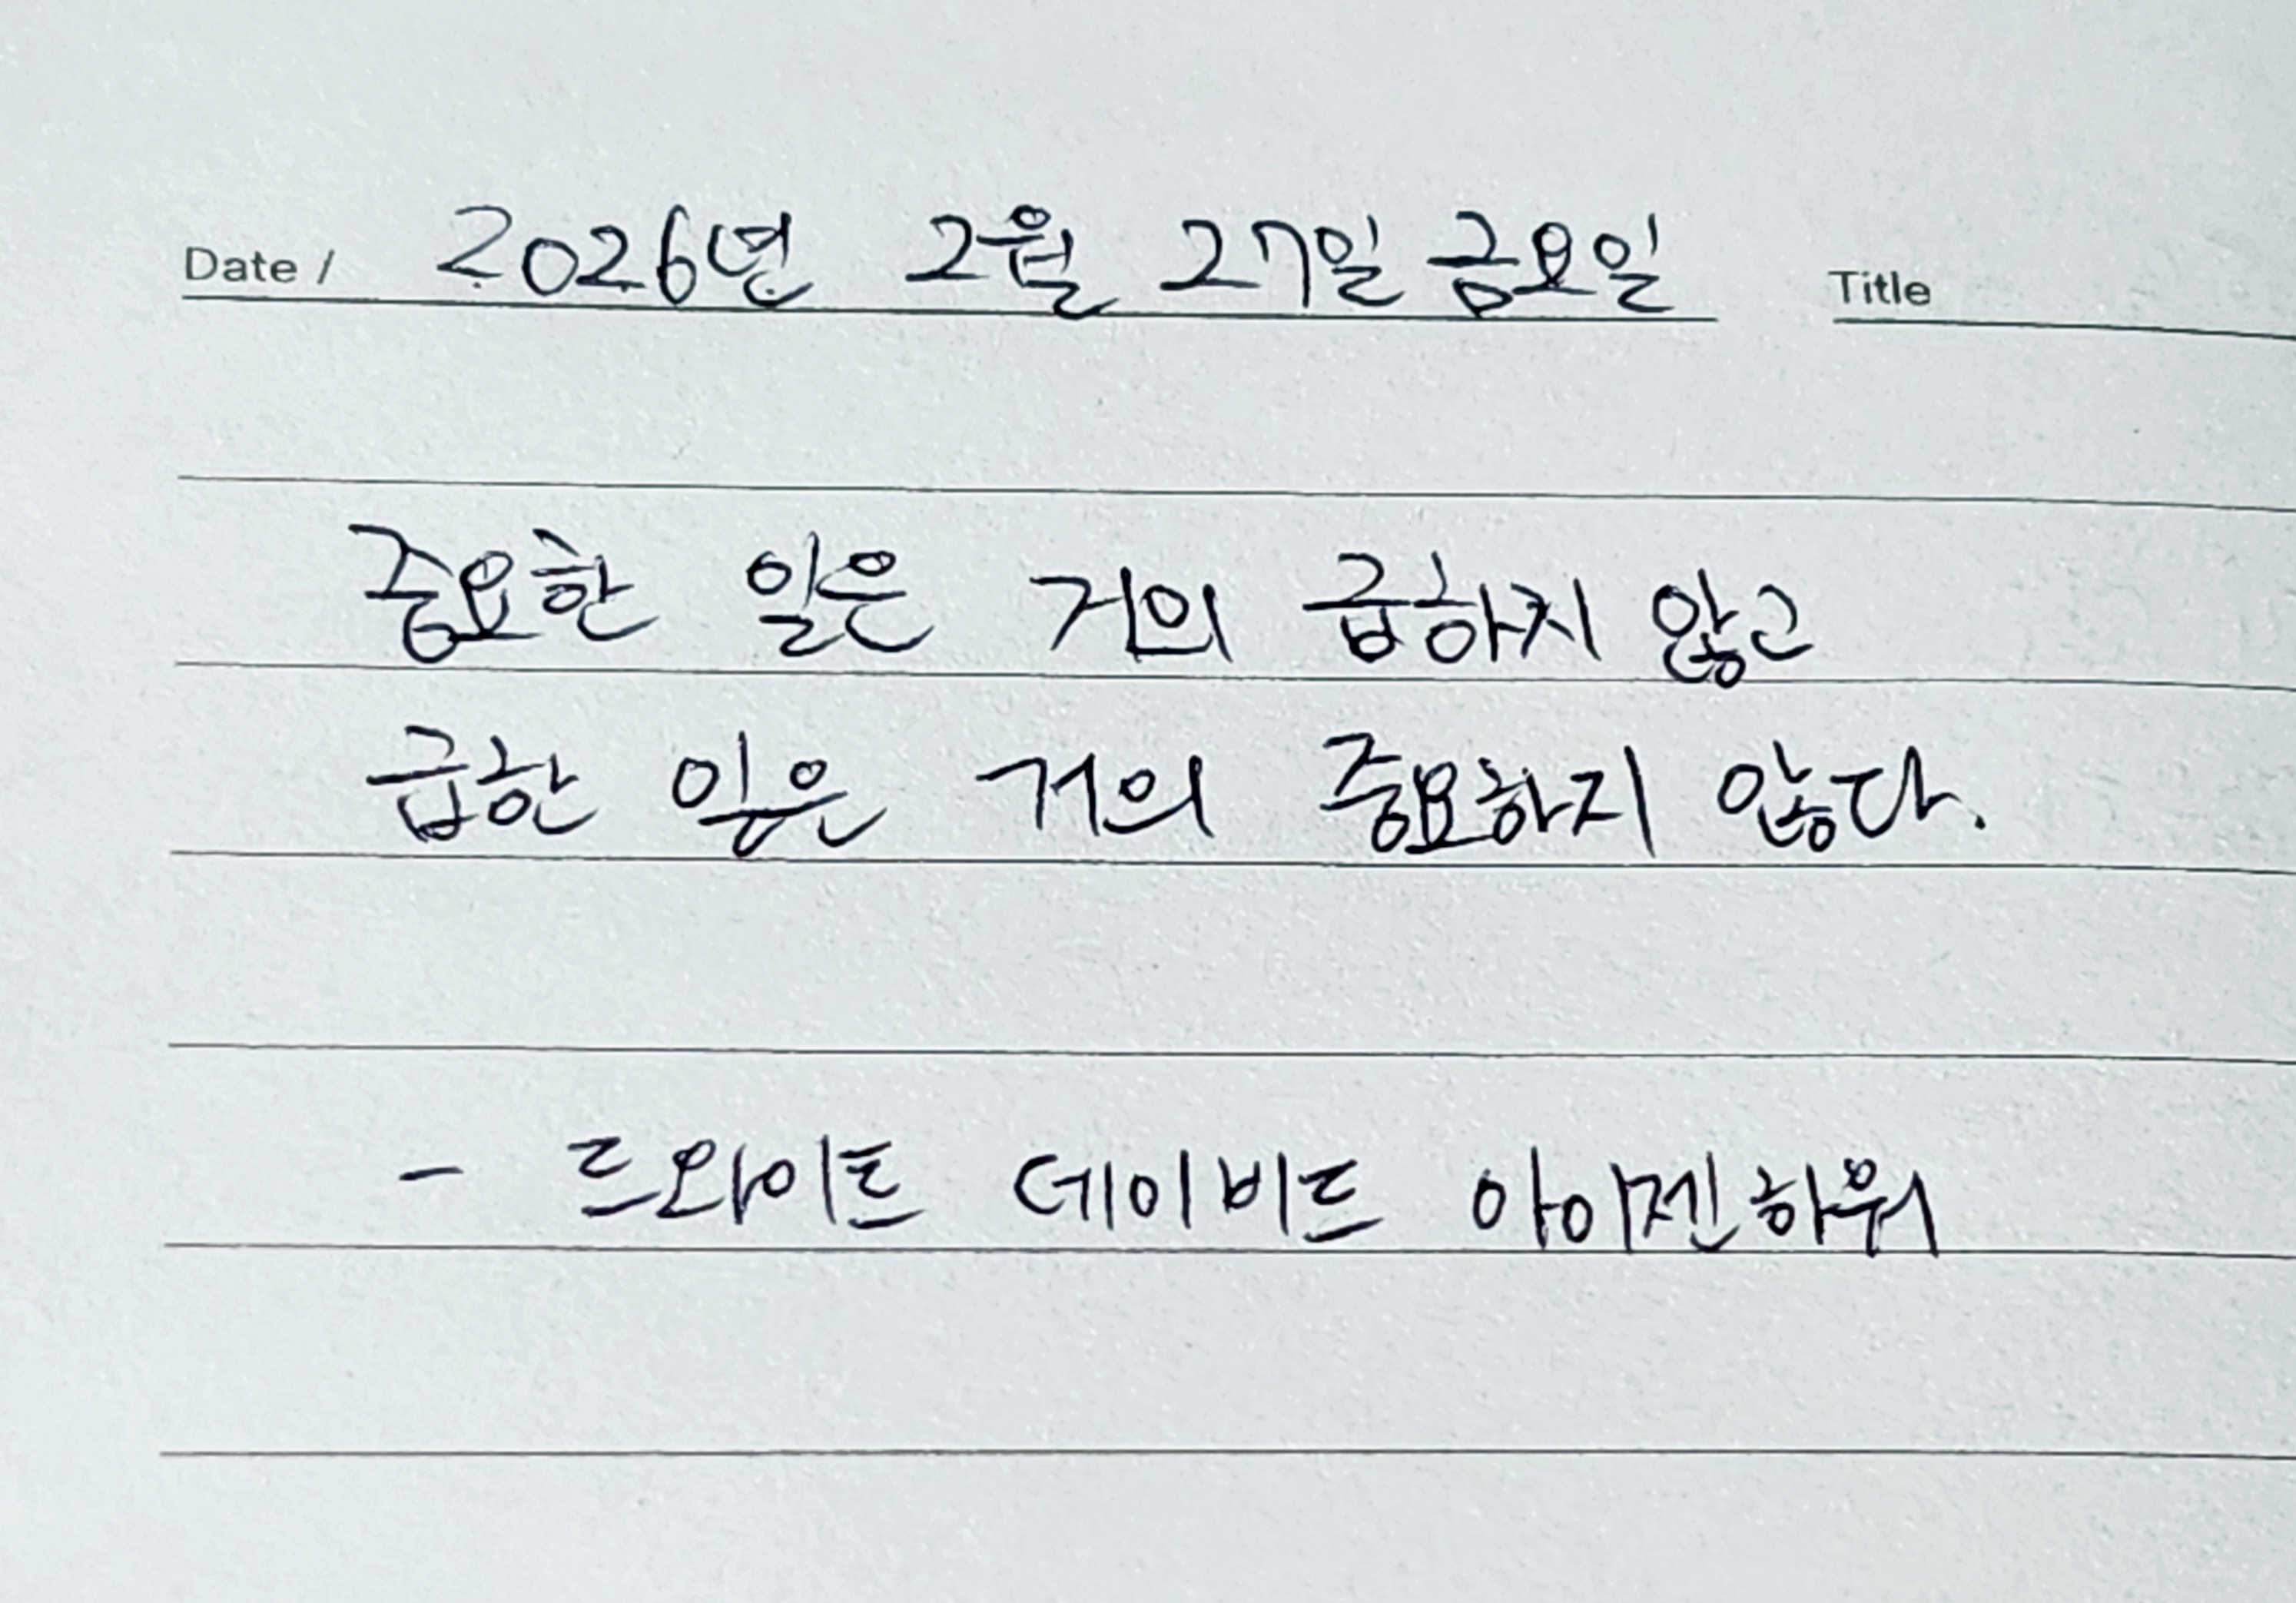 Date / 2026년 2월 27일 금요일 Title
중요한 일은 거의 급하지 않고
급한 일은 거의 중요하지 않다.
- 드와이트 데이비드 아이젠하워